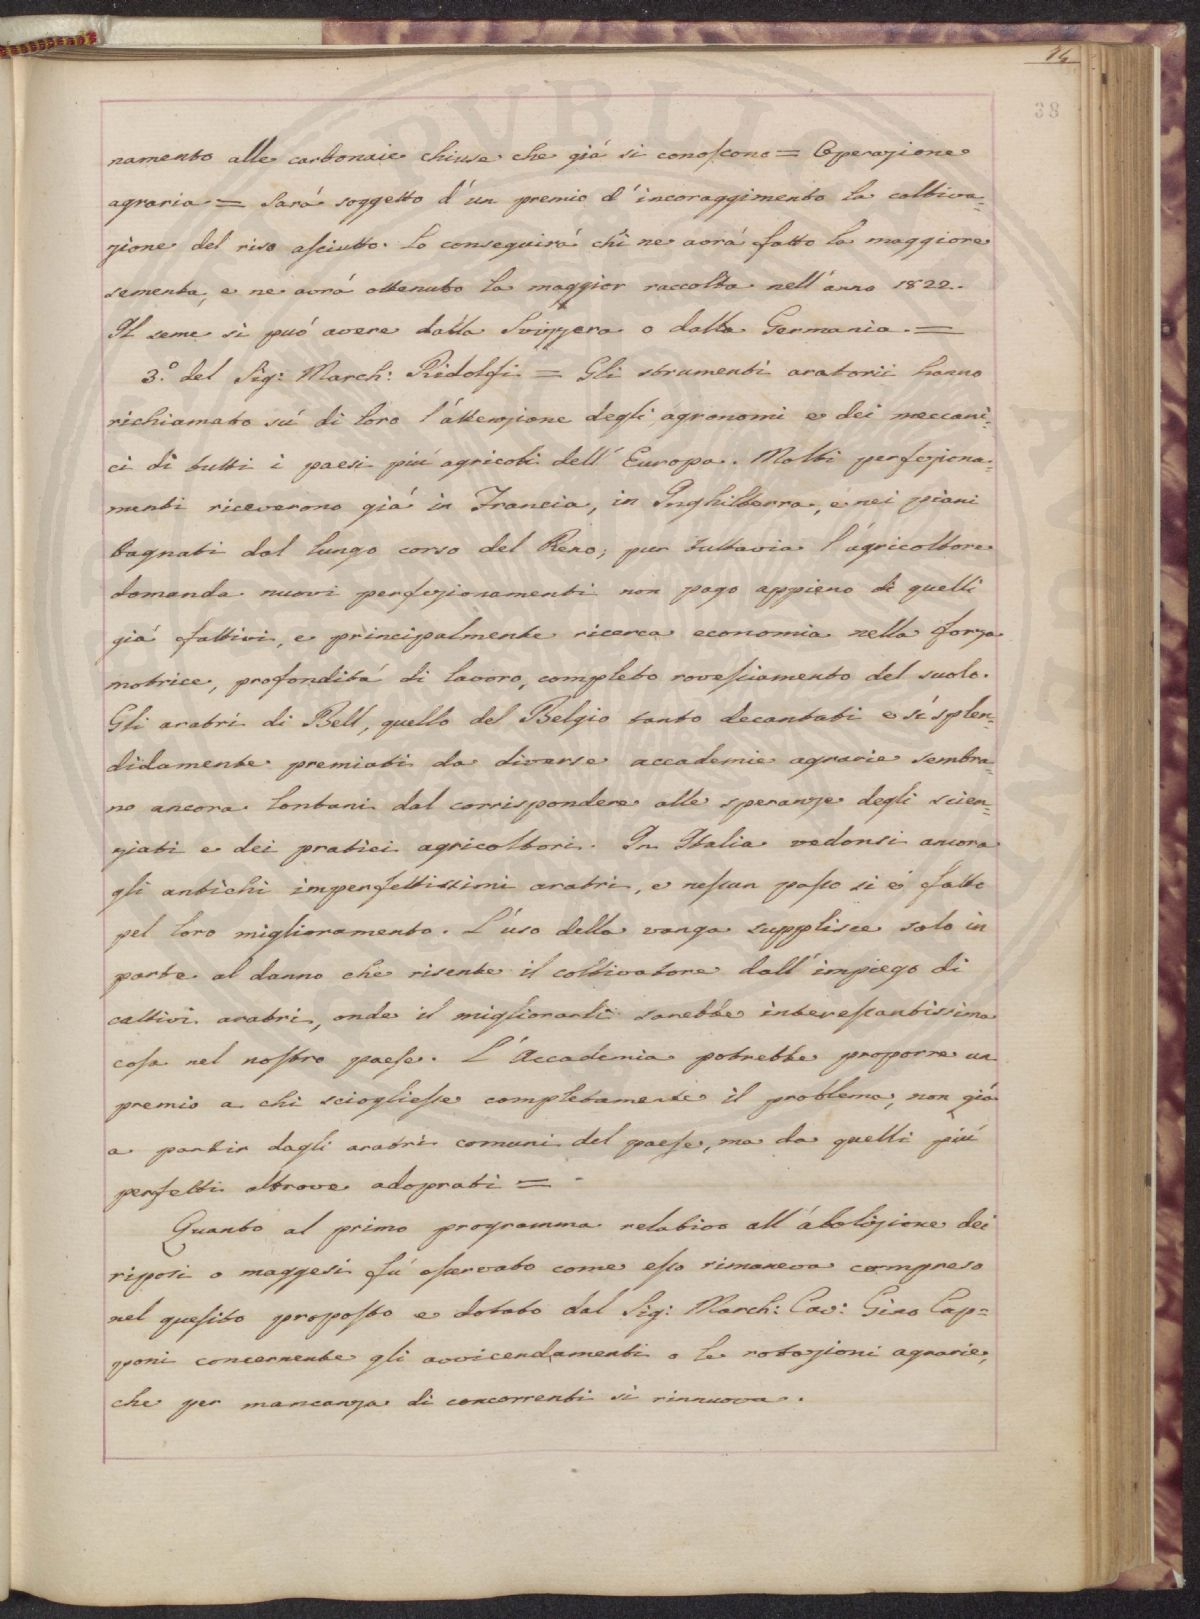 74
38
namento alle carbonaie chiuse che giá si conoscono = Operazione
agraria = Sará soggetto d'un premio d'incoraggimento la coltiva=
zione del riso asciutto. Lo conseguirá chi ne avrá fatto la maggiore
sementa, e ne avrá ottenuto la maggior raccolta nell'anno 1822.
Il seme si puó avere dalla Svizzera o dalla Germania. =
3.° del Sig: March: Ridolfi = Gli strumenti aratorii hanno
richiamato sú di loro l'attenzione degli agronomi e dei meccani=
ci di tutti i paesi piú agricoli dell'Europa. Molti perfeziona=
menti riceverono giá in Francia, in Inghilterra, e nei piani
bagnati dal lungo corso del Reno; pur tuttavia l'agricoltore
domanda nuovi perfezionamenti non pago appieno di quelli
giá fattivi, e principalmente ricerca economia nella forza
motrice, profonditá di lavoro, completo rovesciamento del suolo.
Gli aratri di Bell, quello del Belgio tanto decantati e sí splen=
didamente premiati da diverse accademie agrarie sembra=
no ancora lontani dal corrispondere alle speranze degli scien=
ziati e dei pratici agricoltori. In Italia vedonsi ancora
gli antichi imperfettissimi aratri, e nessun passo si é fatto
pel loro miglioramento. L'uso della vanga supplisce solo in
parte al danno che risente il coltivatore dall'impiego di
cattivi aratri, onde il migliorarli sarebbe interessantissima
cosa nel nostro paese. L'Accademia potrebbe proporre un
premio a chi sciogliesse completamente il problema, non giá
a partir dagli aratri comuni del paese, ma da quelli piú
perfetti altrove adoprati =
Quanto al primo programma relativo all'abolizione dei
riposi o maggesi fú osservato come esso rimaneva compreso
nel quesito proposto e dotato dal Sig: March: Cav: Gino Cap=
poni concernente gli avvicendamenti o le rotazioni agrarie,
che per mancanza di concorrenti si rinnuova.